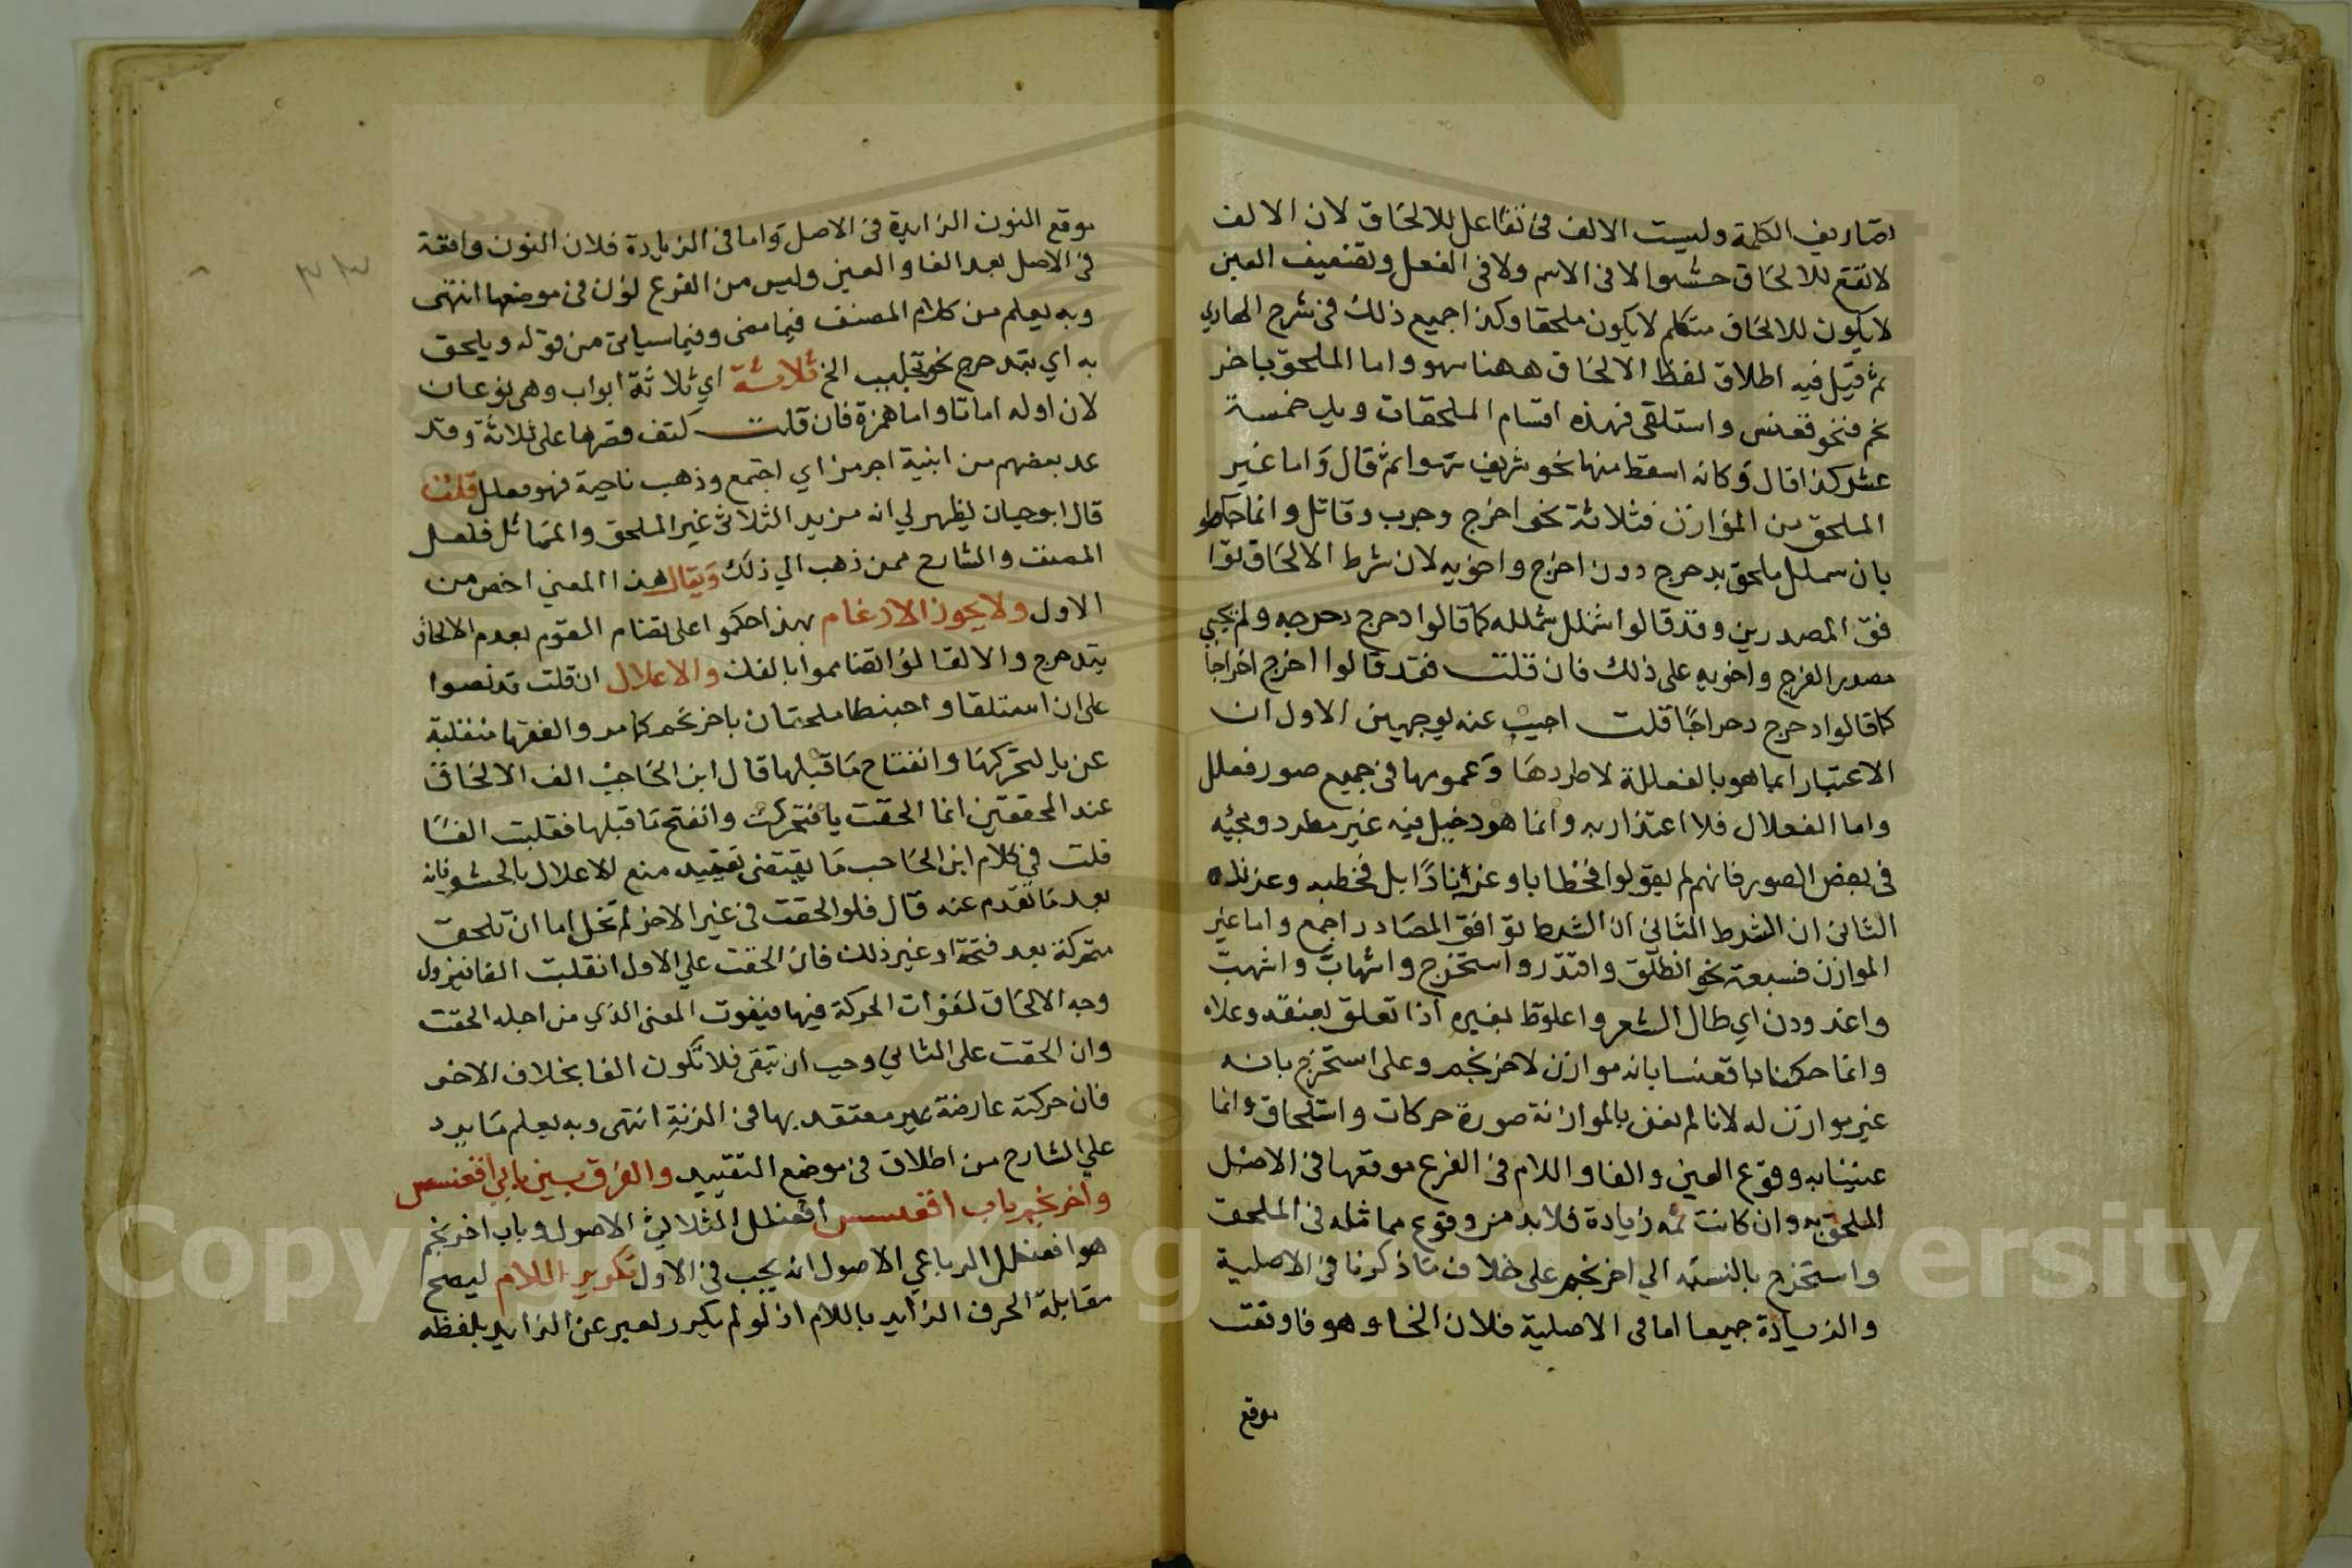 تصاريف الكلمة وليست الالف في تفاعل للالحاق لان الالف
لا تقع للالحاق حشوا لا في الاسم ولا في الفعل وتضعيف العين
لا يكون للالحاق متكلم لا يكون ملحقا وكذا جميع ذلك في شرح الهادي
ثم قيل فيه اطلاق لفظ الالحاق ههنا سهو واما الملحق باخر
نجم فنحو قعنس واستلقى فهذه اقسام الملحقات ويلي خمسة
عشر كذا قال وكانه اسقط منها نحو شريف سهوا ثم قال واما غير
الملحق من الموازن فثلاثة نحو اخرج وجرب وقاتل وانما حكموا
بان سملل ملحق بدحرج دون اخرج واخويه لان شرط الالحاق توا
فق المصدرين وقد قالوا شملل شمللة كما قالوا دحرج دحرجه ولم يجئ
مصدر الفرج واخويه على ذلك فان قلت فقد قالوا اخرج اخراجا
كما قالوا دحرج دحراجا قلت اجيب عنه بوجهين الاول ان
الاعتبار انما هو بالفعللة لاطردها وعمومها في جميع صور فعلل
واما الفعلال فلا اعتذار به وانما هو دخيل فيه غير مطرد ومجئه
في بعض الصور فانهم لم يقولوا فخطابا وعزنادا بل فخطبه وعزنده
الثاني ان الشرط الثاني ان الشرط توافق المصادر اجمع واما غير
الموازن فسبعة نحو انطلق واقتدر واستخرج واشهاب واشهب
واغدودن اي طال الشعر واعلوط بغيره اذا تعلق بعنقه وعلاه
وانما حكمنا باقعنسا بانه موازن لاحرنجم وعلى استخرج بانه
غير موازن له لانا لم نعن بالموازنة صورة حركات واستلحاق وانما
عنينا به وقوع العين والفا واللام في الفرع موقعها في الاصل
الملحق به وان كانت ثمه زيادة فلا بد من وقوع مماثله في الملحق
واستخرج بالنسبة الي احرنجم على خلاف ما ذكرنا في الاصلية
والزيادة جميعا اما في الاصلية فلان الخا وهو فا وقعت
موقع
موقع النون الزايدة في الاصل واما في الزيادة فلان النون واقعة
في الاصل بعد الفا والعين وليس من الفرع نون في موضعها انتهى
وبه يعلم من كلام المصنف فيما مضى وفيما سياتي من قوله ويلحق
به اي بتدحرج نحو تجلبب الخ ثلاثة اي ثلاثة ابواب وهي نوعان
لان اوله اما تا واما همزة فان قلت كتف قصرها على ثلاثة وقد
عد بعضهم من ابنية اجرمز اي اجتمع وذهب ناحية فهو معلل قلت
قال ابوحيان يظهر لي انه مزيد الثلاثي غير الملحق والمماثل فلعل
المصنف والشارح ممن ذهب الي ذلك ويقال هذا المعني اخص من
الاول ولا يجوز الادغام بهذا حكموا على تضام القوم بعدم الالحاق
بتدحرج والا لقالوا تضامموا بالفك والاعلال ان قلت قد نصوا
على ان استلقا واحبنطا ملحقان باحرنجم كما مر والفهما منقلبة
عن يا لتحركها وانفتاح ما قبلها قال ابن الحاجب الف الالحاق
عند المحققين انما الحقت يا فتحركت وانفتح ما قبلها فقلبت الفا
قلت في كلام ابن الحاجب ما يقتضي تقييد منع الاعلال بالحشو فانه
بعد ما تقدم عنه قال فلو الحقت في غير الاخر لم تخل اما ان تلحق
متحركة بعد فتحة او غير ذلك فان الحقت علي الاول انقلبت الفا فيزول
وجه الالحاق لفوات الحركة فيها فيفوت المعنى الذي من اجله الحقت
وان الحقت على الثاني وجب ان تبقى فلا تكون الفا بخلاف الاخر
فان حركته عارضة غير معتقد بها في الزنة انتهى وبه يعلم ما يرد
علي الشارح من اطلاق في موضع التقييد والفرق بين بابي اقعنسس
واحرنجم باب اقعنسس افعنلل الثلاثي الاصول وباب احرنجم
هو افعنلل الرباعي الاصول انه يجب في الاول تكرير اللام ليصح
مقابلة الحرف الزايد باللام اذ لو لم يكرر لعبر عن الزايد بلفظه
٢٣
Copyright © King Saud University